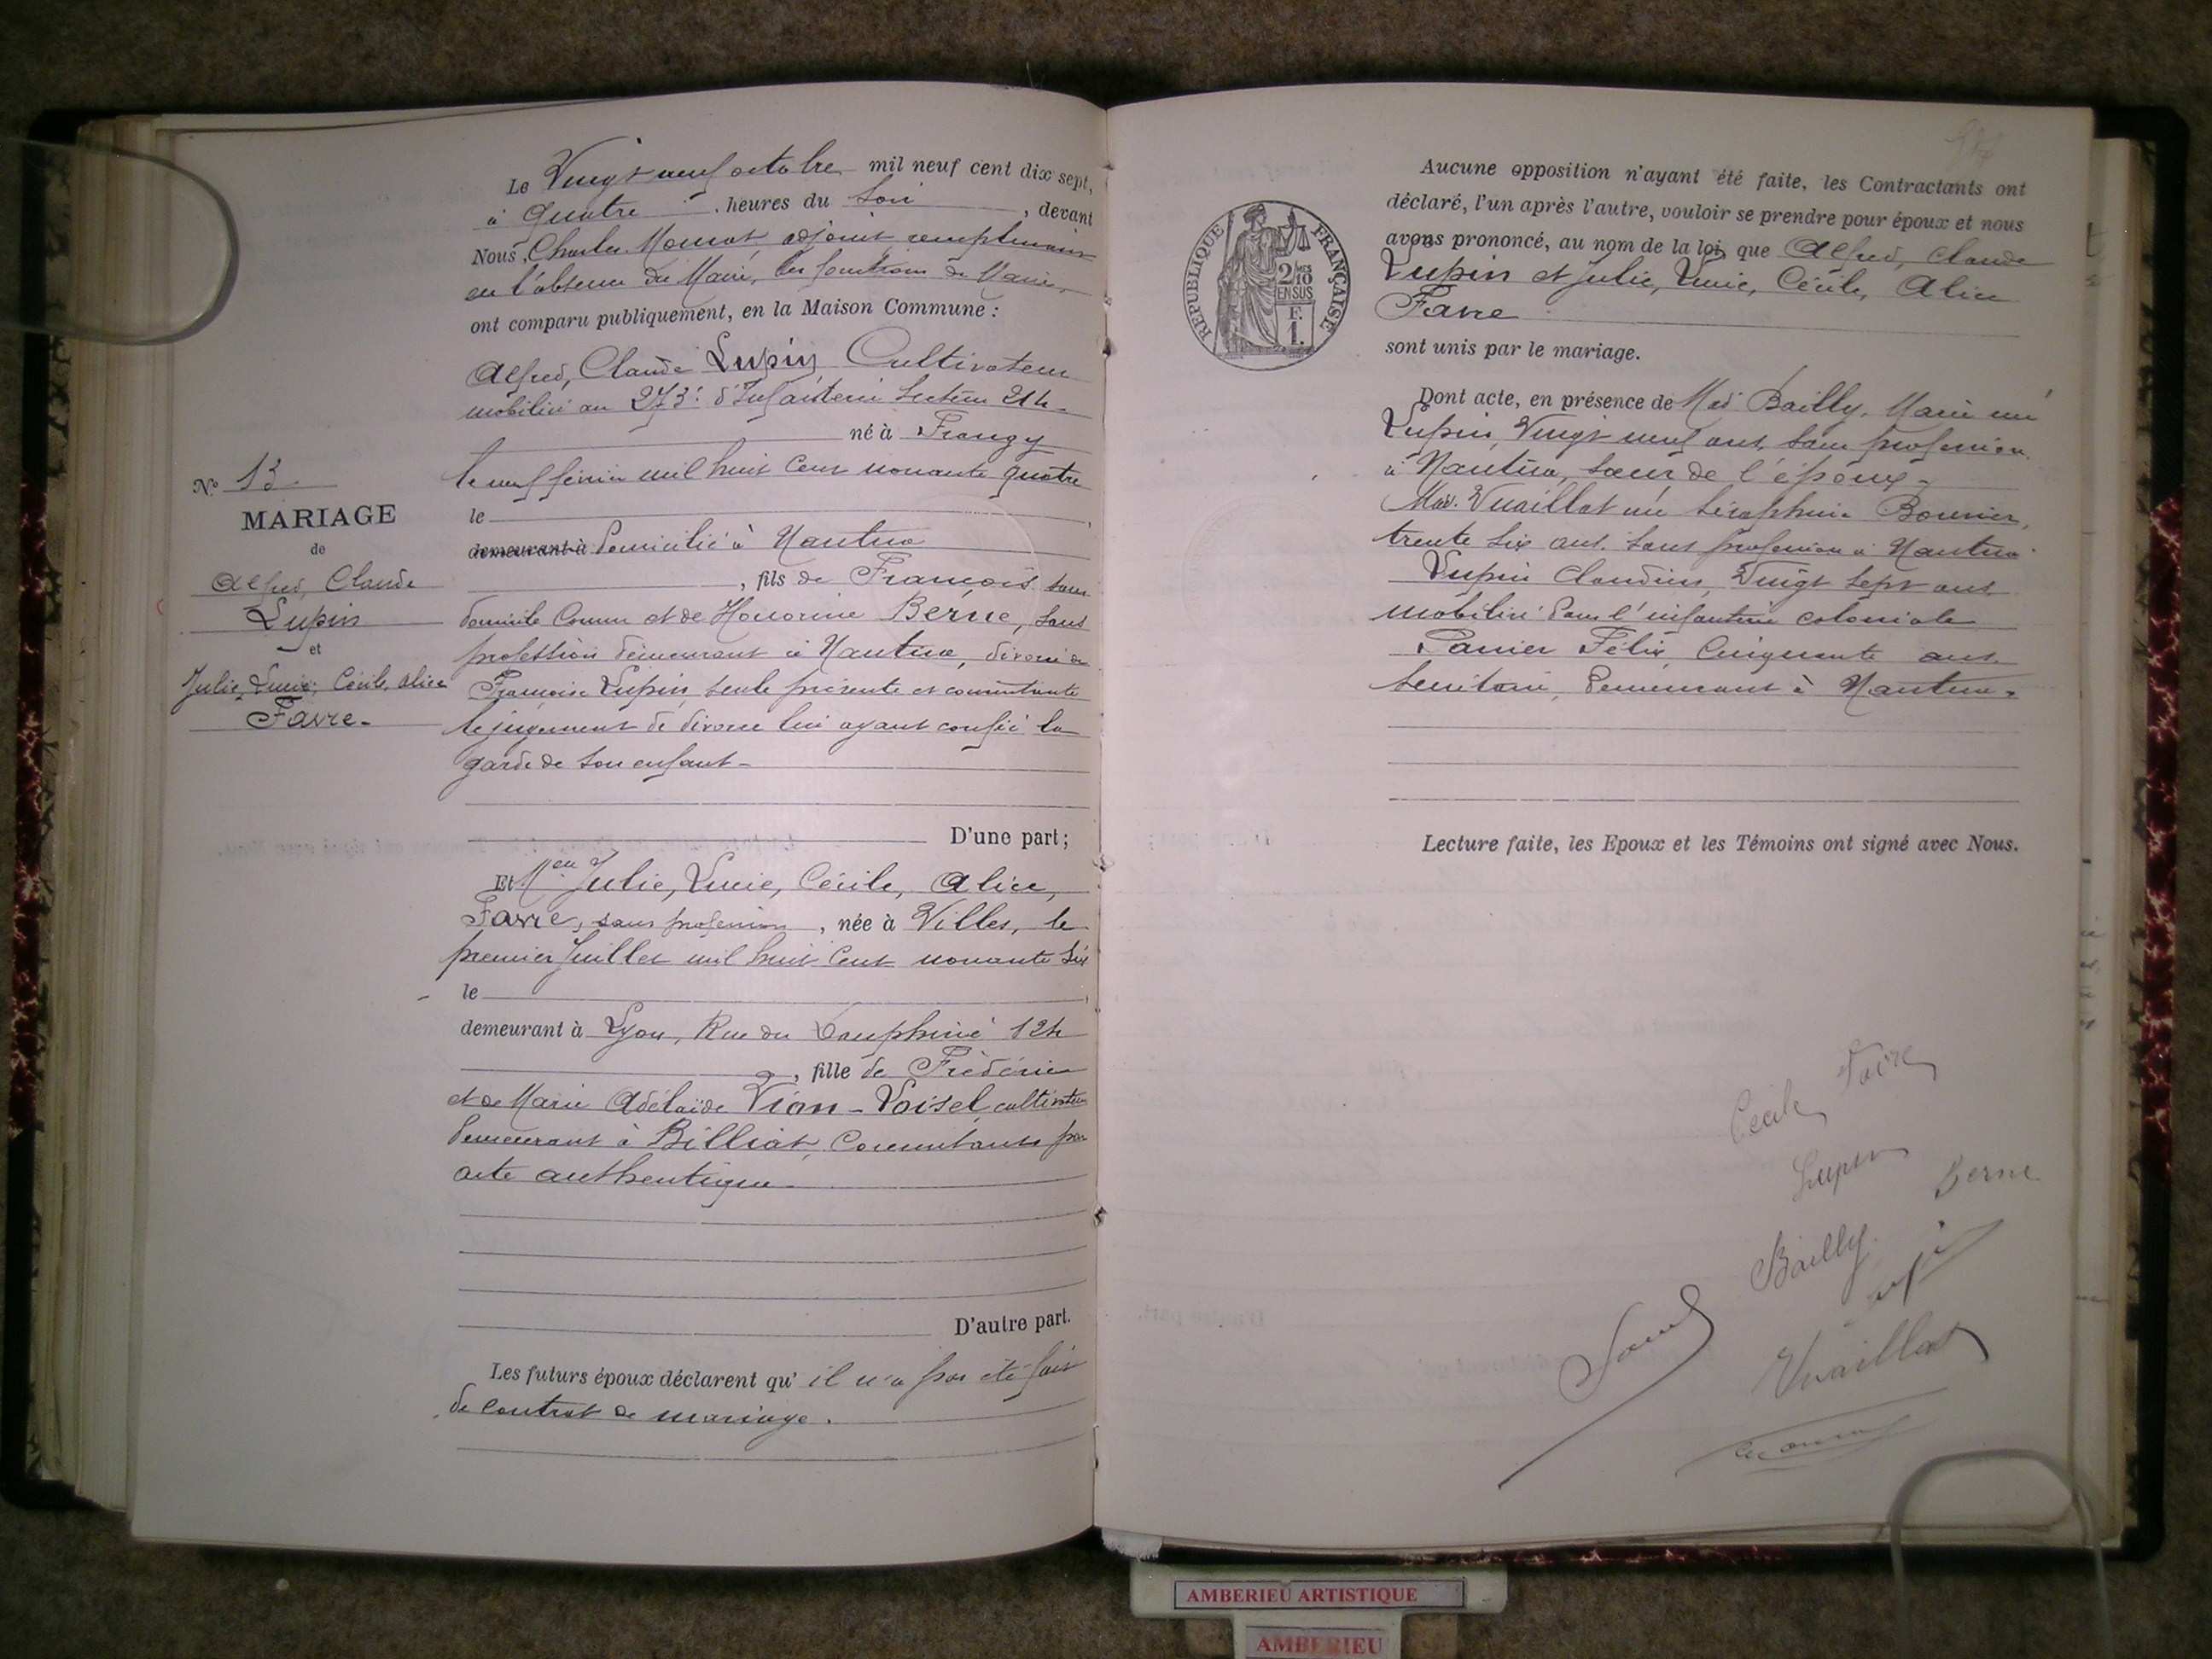 Le Vingt neuf octobre mil neuf cent dix sept,
à Quatre heures du Soir, devant
Nous, Charles adjoint remplissant
en l'absence du Maire, les fonctions de Maire,
ont comparu publiquement, en la Maison Commune :
Alfred, Claude Lupin Cultivateur
mobilisé au 273e d'Infanterie Secteur 214
né à Frangy
le neuf février mil huit cent nonante quatre
le
demeurant à domicilié à Nantua
, fils de François sans
domicile connu et de Honorine Berne, sans
profession demeurant à Nantua, divorcée de
François Lupin, seule présente et consentante
le jugement de divorce lui ayant confié la
garde de son enfant
D'une part;
Et Melle Julie, Lucie, Cécile, Alice,
Favre, sans profession, née à Villes, le
premier Juillet mil huit cent nonante six
le
demeurant à Lyon, Rue du Dauphiné 124
, fille de Frédéric
et de Marie Adélaïde Vion-Loisel cultivateurs
demeurant à Billiat, Consentants par
acte authentique
D'autre part.
Les futurs époux déclarent qu' il n'a pas été fait
de contrat de mariage.
No 13
MARIAGE
de
Alfred, Claude
Lupin
et
Julie, Lucie, Cécile, Alice
Favre
Aucune opposition n'ayant été faite, les Contractants ont
déclaré, l'un après l'autre, vouloir se prendre pour époux et nous
avons prononcé, au nom de la loi, que Alfred, Claude
Lupin et Julie, Lucie, Cécile, Alice
Favre
sont unis par le mariage.
RÉPUBLIQUE FRANÇAISE
2 MES 10
EN SUS
F.
1.
Dont acte, en présence de Mad. Bailly, Marie née
Lupin, Vingt neuf ans, sans profession
à Nantua, sœur de l'époux
Mad. Vuaillat née Séraphine Bonnier,
trente six ans, sans profession à Nantua
Lupin Claudius, Vingt sept ans
mobilisé dans l'infanterie coloniale
Félix, Cinquante ans
Secrétaire, demeurant à Nantua
Lecture faite, les Epoux et les Témoins ont signé avec Nous.
Cécile Favre
Lupin
Berne
Bailly
Vuaillat
AMBERIEU ARTISTIQUE
AMBERIEU